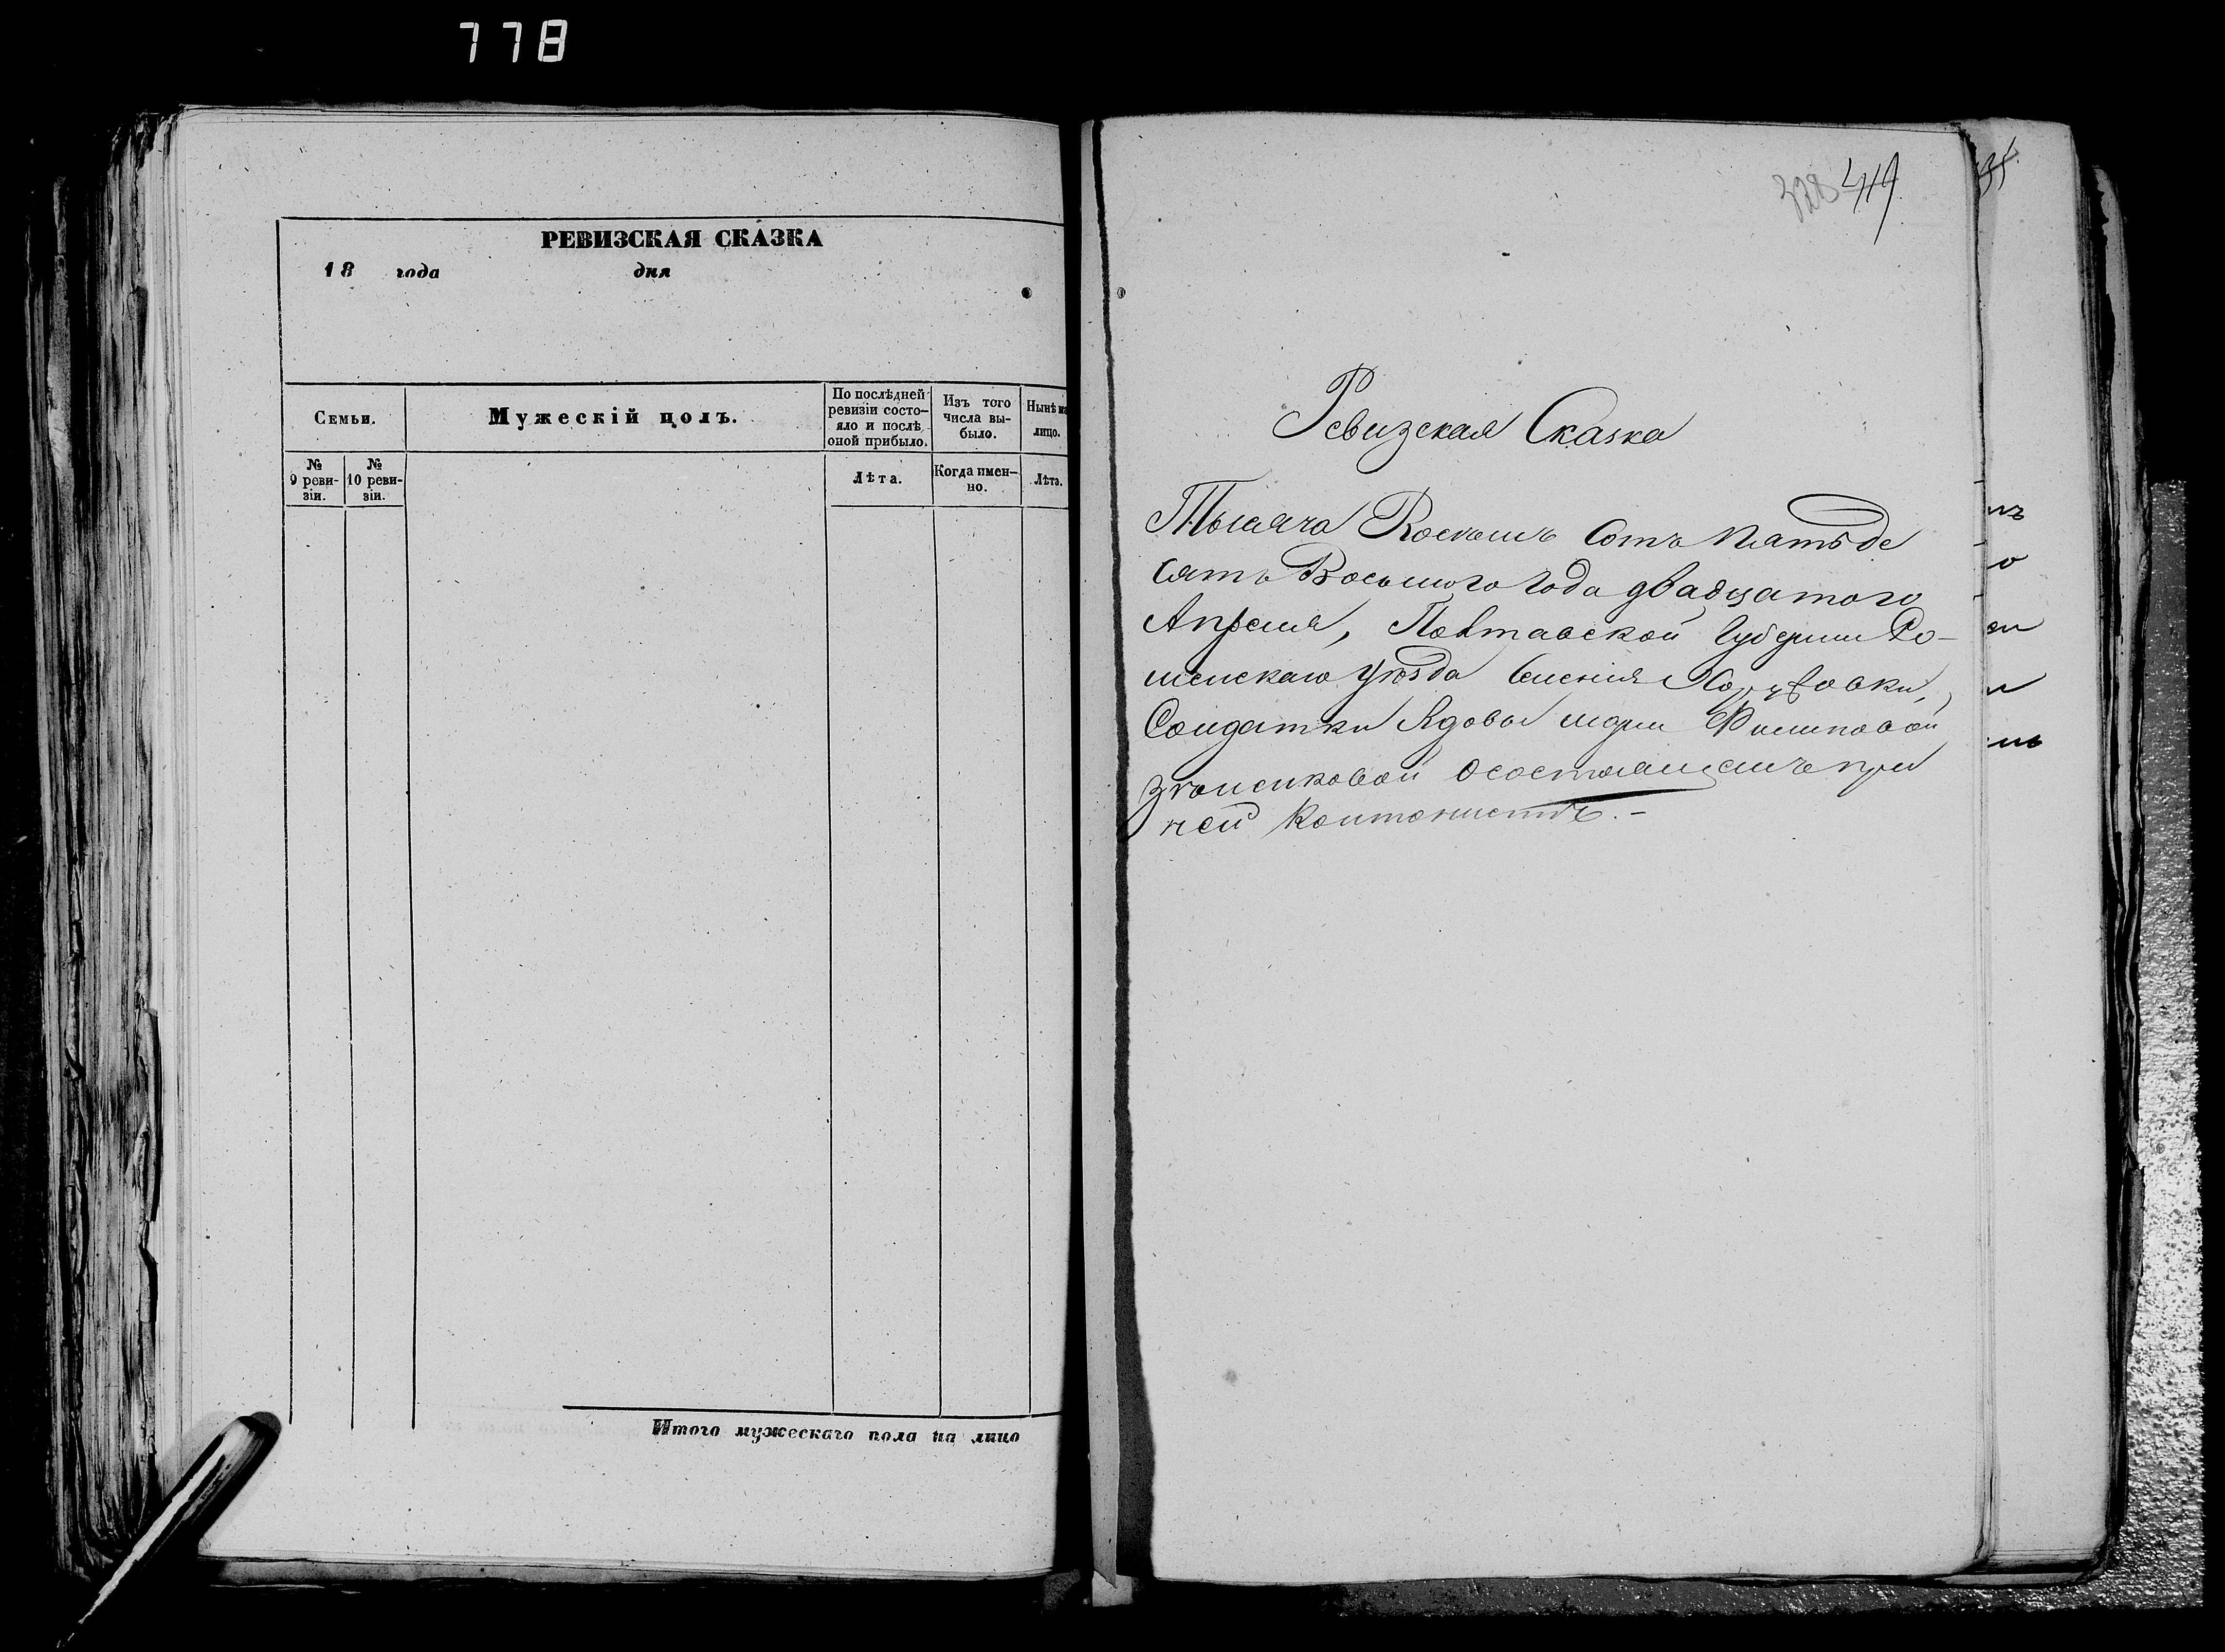 778
РЕВИЗСКАЯ СКАЗКА
18 года дня
Семьи.
Мужескій полъ.
По послѣдней
ревизіи состо-
яло и послѣ
оной прибыло.
Изъ того
числа вы-
было.
Нынѣ на
лицо.
№
9 реви-
зіи.
№
10 реви-
зіи.
Лѣта.
Когда имен-
но.
Лѣта.
Итого мужескаго пола на лицо
328 419
Ревизская Сказка
Тысяча Восемь Сотъ Пятьде
сятъ Восьмого года двадцатого
Апреля, Полтавской Губернии Ро-
менскаго Уѣзда Селения
Солдатки Вдовы Марии Филиповой
осостоящемъ при
ней Кантонистѣ.-